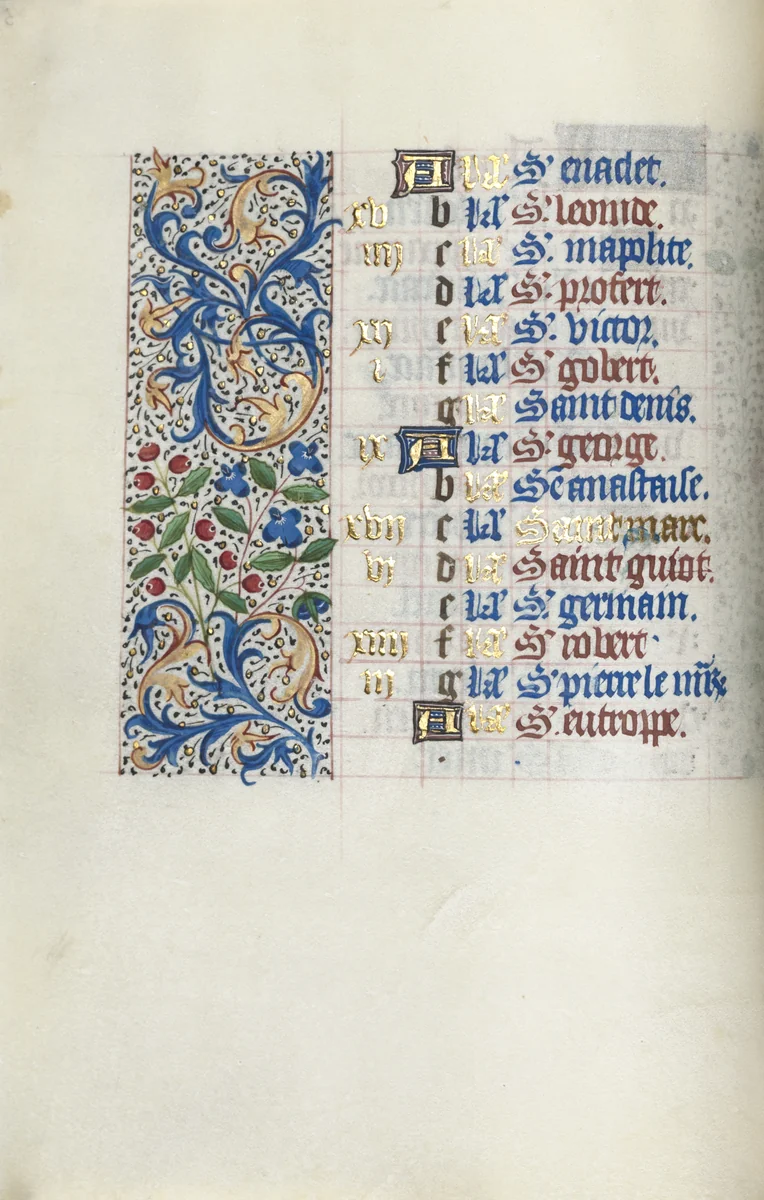 A kl' S' enaclet.
xv b kl' S' leonide.
iiij c kl' S'. mapolite.
d kl' S'. profert.
xij e kl' S'. victor.
i f kl' S' gobert.
g kl' Saint denis.
ix A kl' S' george.
b kl' Sē anastaise.
xvij c kl' Saint marc.
vj d kl' Saint guiot.
e kl' S' germain.
xiiij f kl' S' robert
iij g kl' S' pierre le
A kl' S. eutroppe.